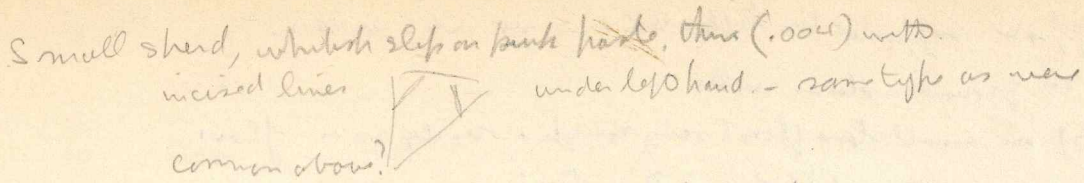 Small sherd, whitish slip on pink paste, thin (.004) with
incised lines under left hand. - same type as were
common above?